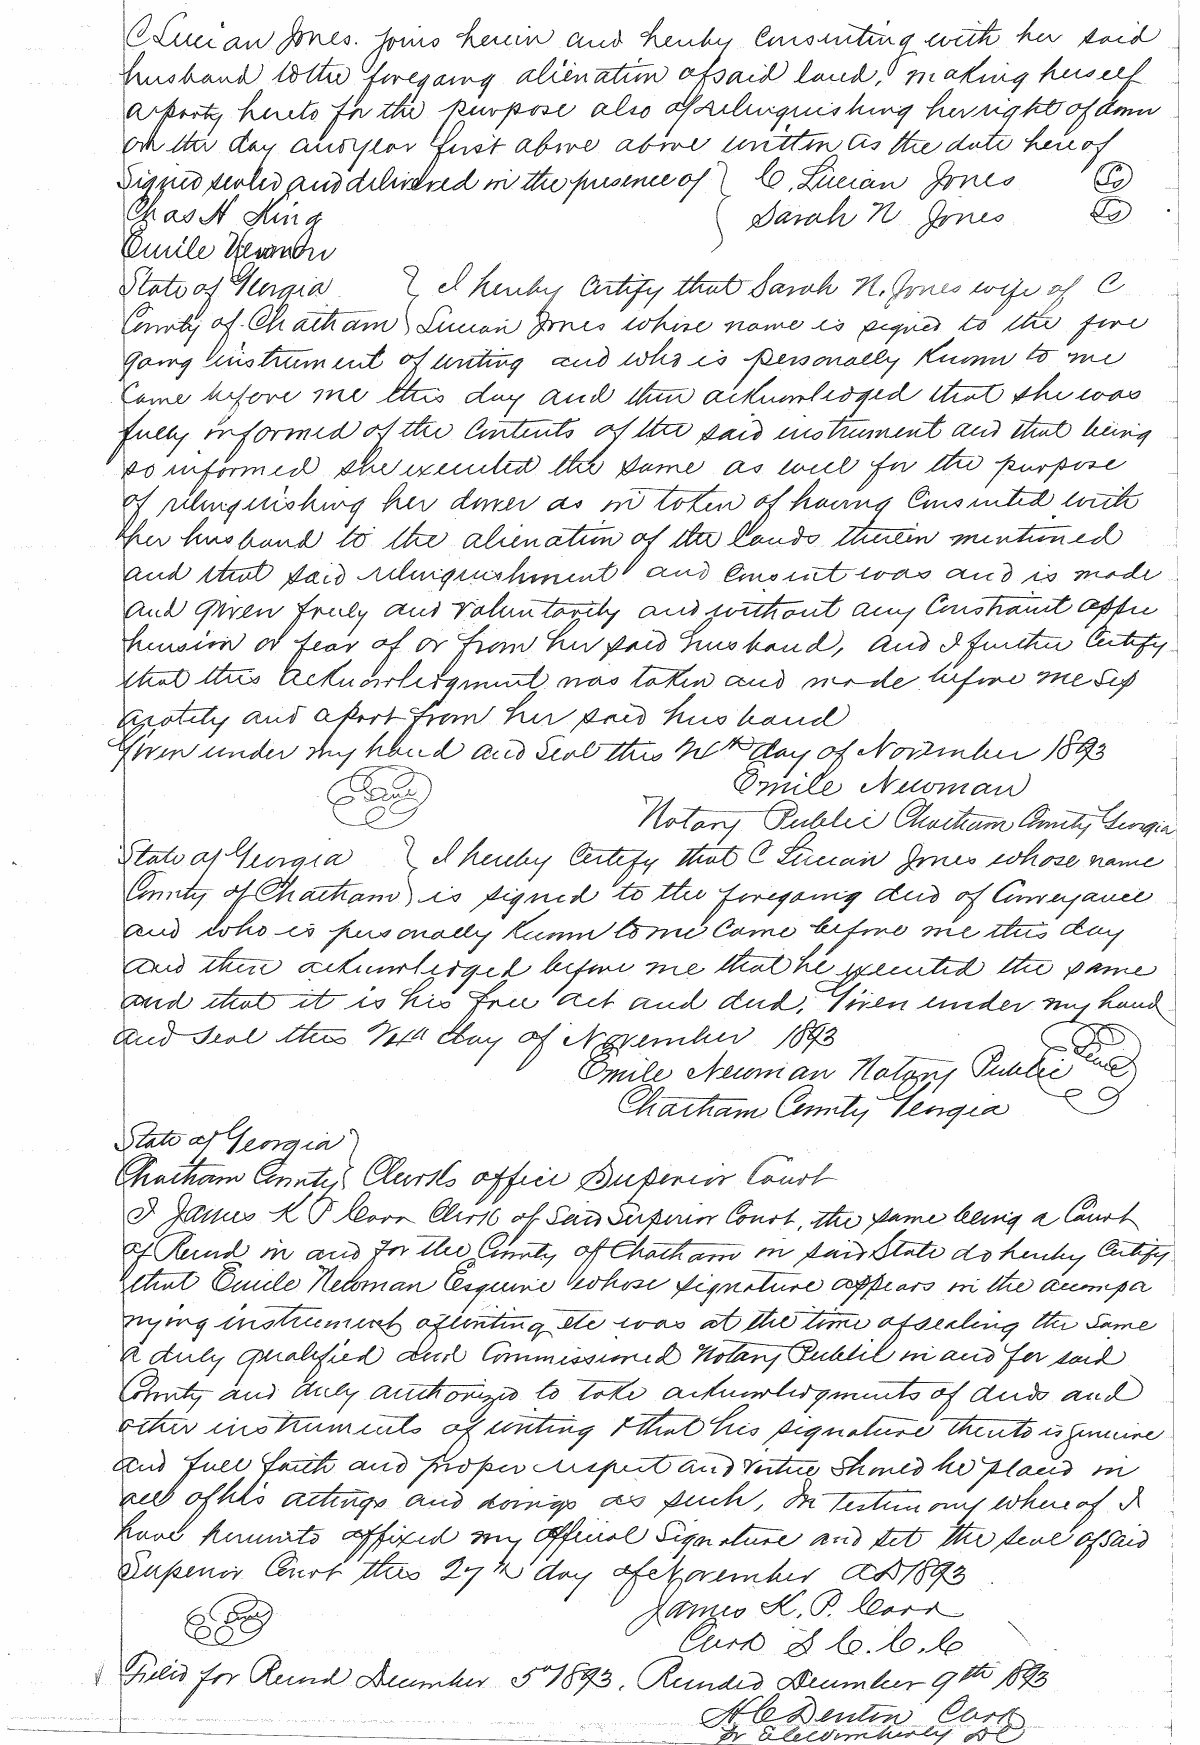 C Lucian Jones. Joins herein and hereby Consenting with her said
husband to the foregoing alienation of said land, making herself
a party hereto for the purpose also of relinquishing her right of dower
on the day and year first above above written as the date hereof
Signed sealed and delivered in the presence of } C. Lucian Jones LS
Chas H King Sarah N Jones LS
Emile Newman
State of Georgia } I hereby Certify that Sarah N. Jones wife of C
County of Chatham } Lucian Jones whose name is signed to the fore
going instrument of writing and who is personally Known to me
Came before me this day and then acknowledged that she was
fully informed of the Contents of the said instrument and that being
so informed she executed the same as well for the purpose
of relinquishing her dower as in token of having Consented with
her husband to the alienation of the lands therein mentioned
and that said relinquishment and consent was and is made
and given freely and voluntarily and without any Constraint appre
hension or fear of or from her said husband, and I further Certify
that this acknowledgment was taken and made before me sep
arately and apart from her said husband
Given under my hand and Seal this day of November 1893
Seal Emile Newman
Notary Public Chatham County Georgia
State of Georgia } I hereby Certify that C Lucian Jones whose name
County of Chatham } is signed to the foregoing deed of Conveyance
and who is personally Known to me Came before me this day
and then acknowledged before me that he executed the same
and that it is his free act and deed. Given under my hand
and Seal this day of November 1893
Emile Newman Notary Public Seal
Chatham County Georgia
State of Georgia }
Chatham County } Clerks office Superior Court
I James K P Carr Clerk of Said Superior Court, the same being a Court
of Record in and for the County of Chatham in said State do hereby Certify
that Emile Newman Esquire whose signature appears in the accompa
nying instrument of writing etc was at the time of sealing the same
a duly qualified and Commissioned Notary Public in and for said
County and duly authorized to take acknowledgments of deeds and
other instruments of writing & that his signature thereto is genuine
and full faith and proper respect and virtue Should be placed in
all of his actings and doings as such, In Testimony whereof I
have hereunto affixed my official Signature and set the seal of said
Superior Court this 27th day of November AD 1893
Seal James K. P. Carr
Clerk S C. C. C
Filed for Record December 5th 1893. Recorded December 9th 1893
H C Denton Clerk
DC